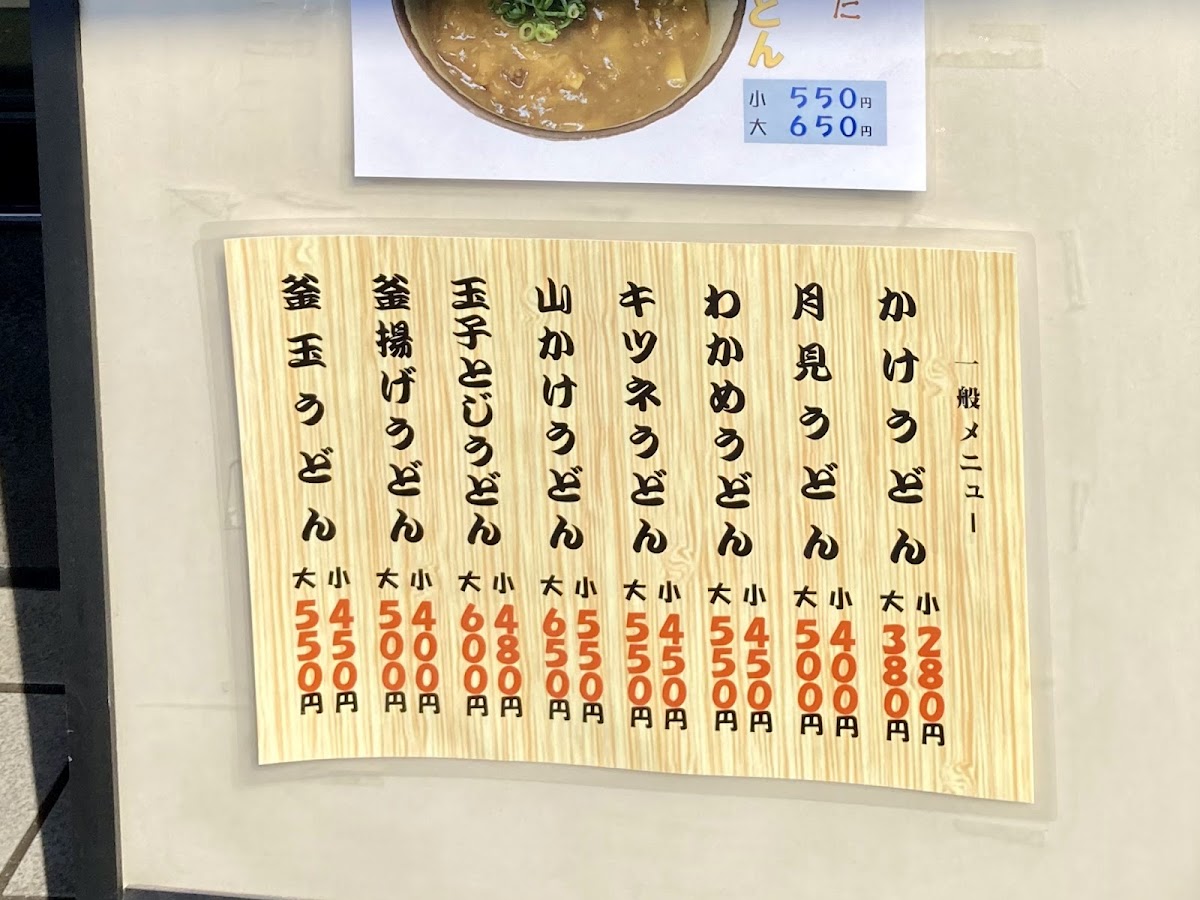 に
どん
小 550円
大 650円
一般メニュー
かけうどん
小 280円
大 380円
月見うどん
小 400円
大 500円
わかめうどん
小 450円
大 550円
キツネうどん
小 450円
大 550円
山かけうどん
小 550円
大 650円
玉子とじうどん
小 480円
大 600円
釜揚げうどん
小 400円
大 500円
釜玉うどん
小 450円
大 550円